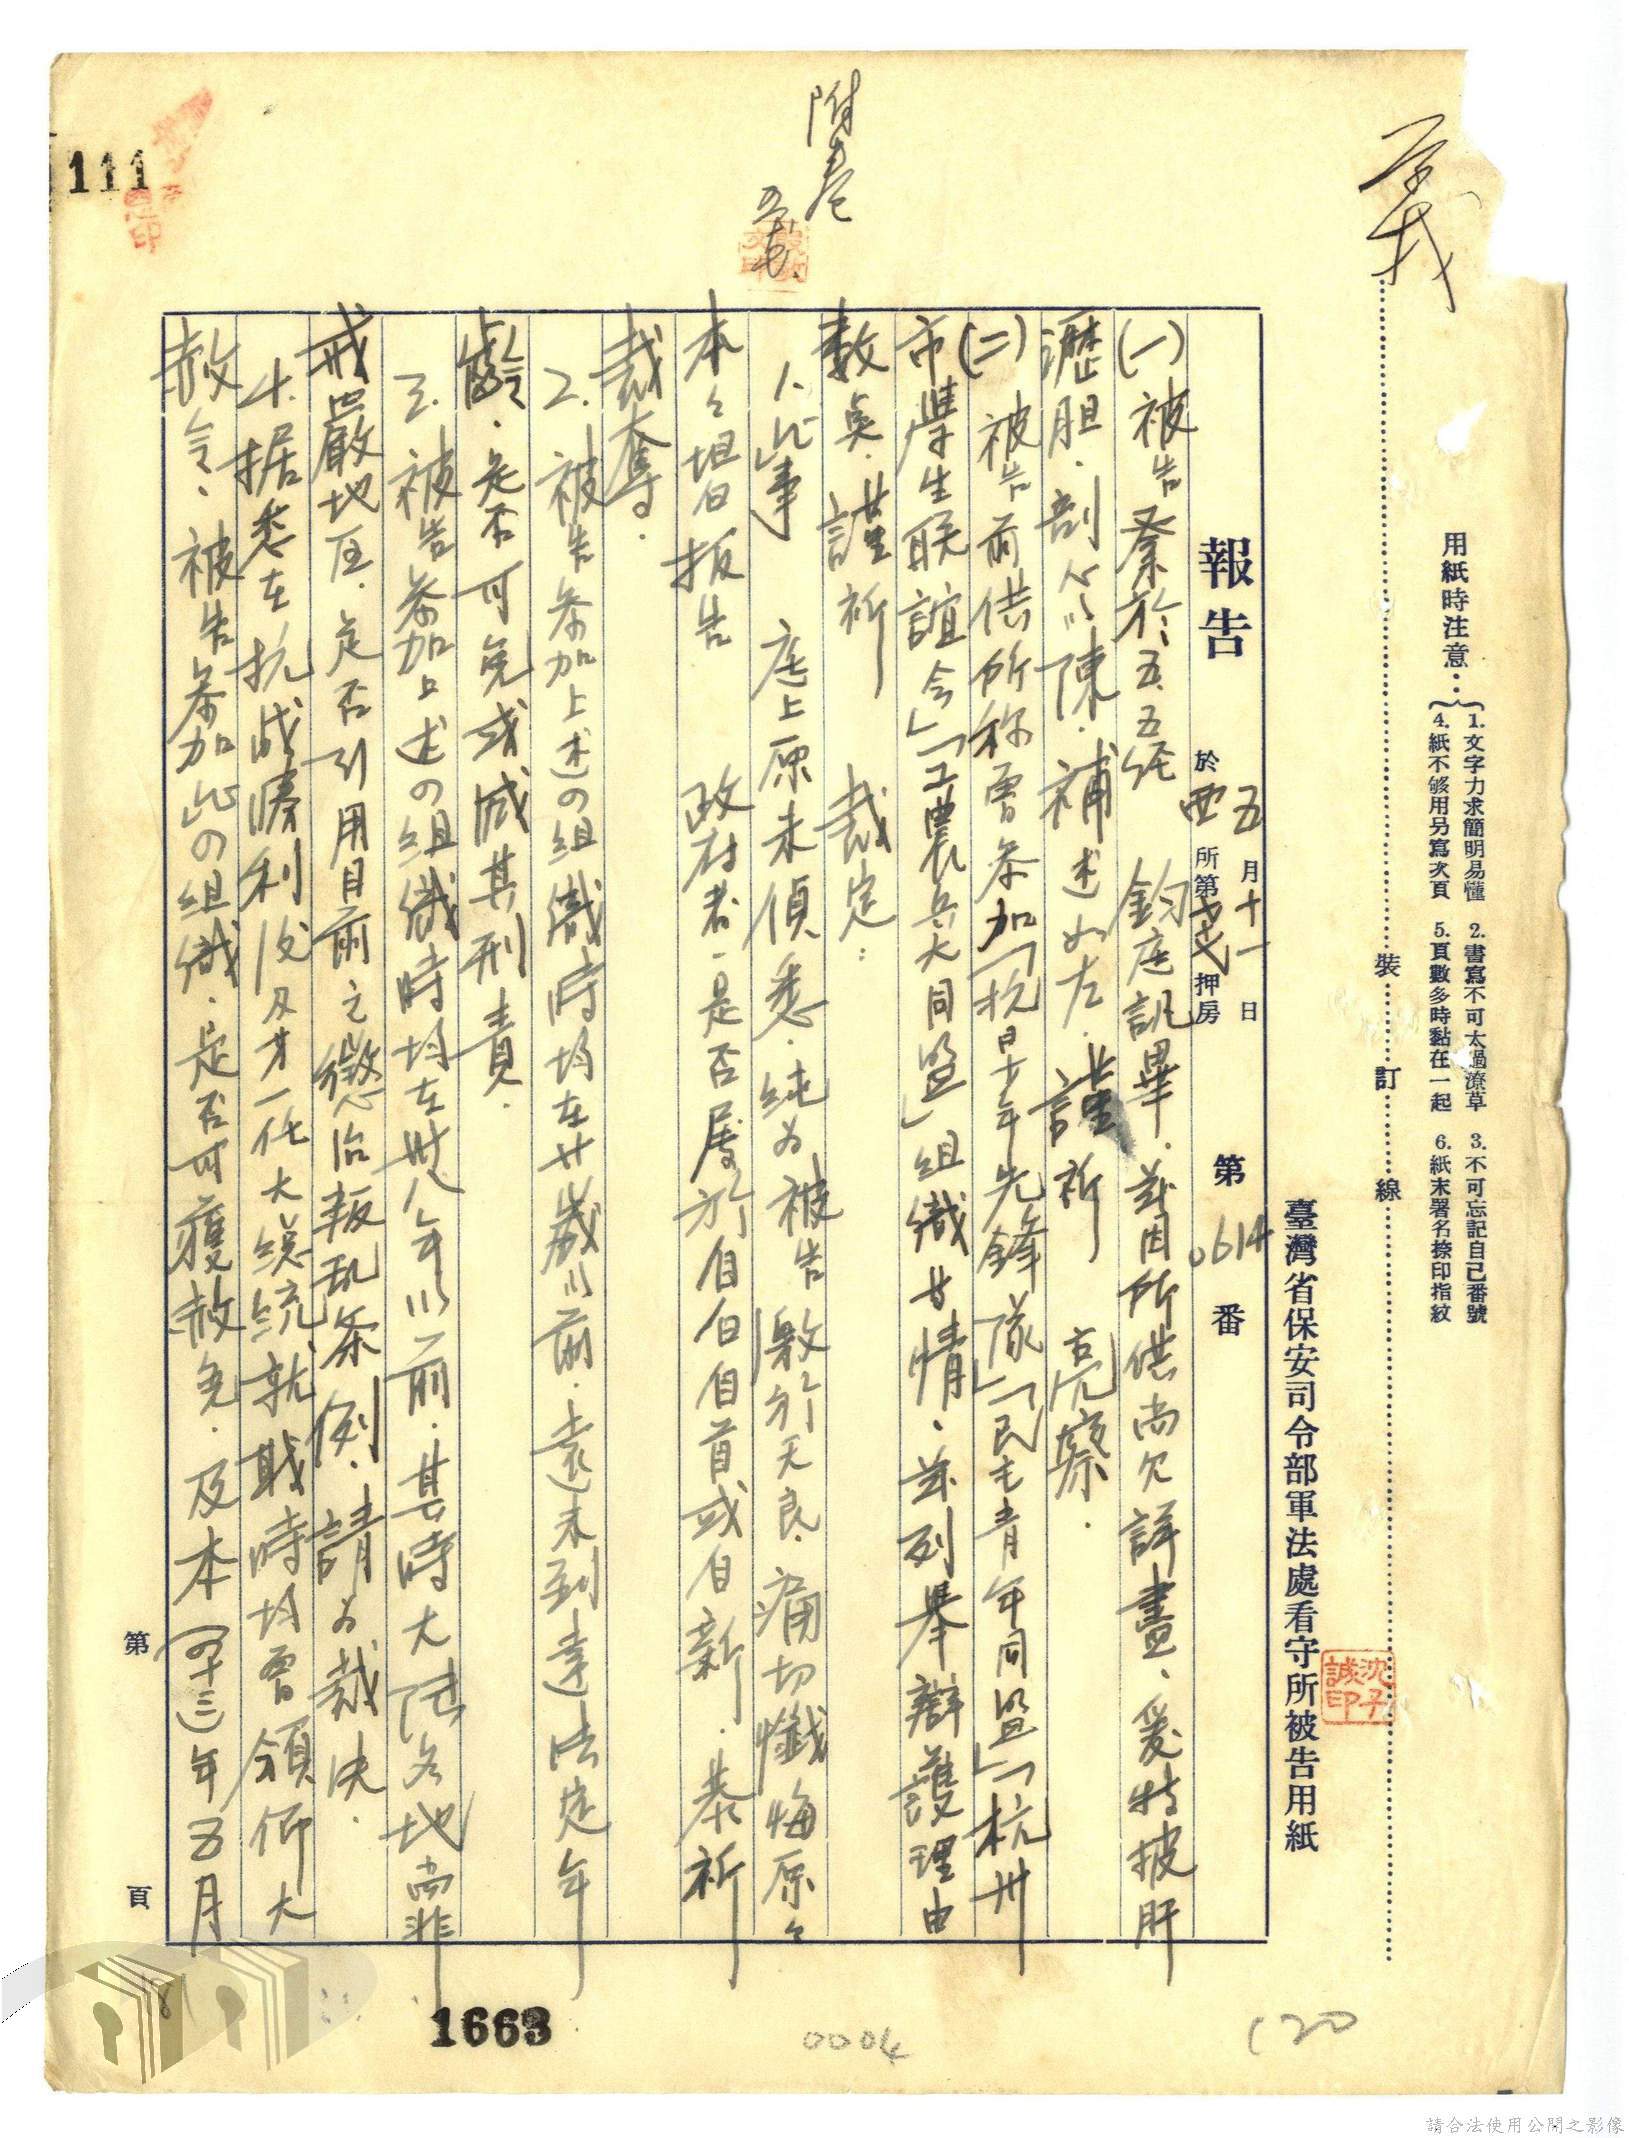 用紙時注意：
1. 文字力求簡明易懂 2. 書寫不可太過潦草 3. 不可忘記自己番號
4. 紙不够用另寫次頁 5. 頁數多時黏在一起 6. 紙末署名捺印指紋
裝訂線
臺灣省保安司令部軍法處看守所被告用紙
沈子誠印
報告 五月十一日 於西所第 押房 第0614番
(一)被告蔡於五.五經 鈞庭訊畢．茲因所供尚欠詳盡、爰特披肝
瀝胆．剖心以陳．補述如左．謹祈 亮察．
(二)被告前供所称曾参加「抗日少年先鋒隊」「民主青年同盟」「杭州
市學生联誼会」「工農兵大同盟」組織廿情、茲列舉辯護理由
数奌．謹祈 裁定：
1.此事 庭上原未偵悉．純为被告激於天良．痛切懺悔原々
本々坦白报告 政府者．是否屬於自白自首或自新．恭祈
裁奪．
2.被告参加上述の組織時均在廿歲以前．遠未到達法定年
齡．是否可免或减其刑責．
3.被告参加上述の組織時均在卅八年以前．其時大陸各地尚非
戒嚴地区．是否引用目前之懲治叛乱条例．請为裁决．
4.据悉在抗战勝利後及才一任大総統就耺時均曾頒佈大
赦令、被告参加此の組織．是否可獲赦免．及本(四十三)年五月
第 頁
附卷
111
1663
0004
120
18
請合法使用公開之影像